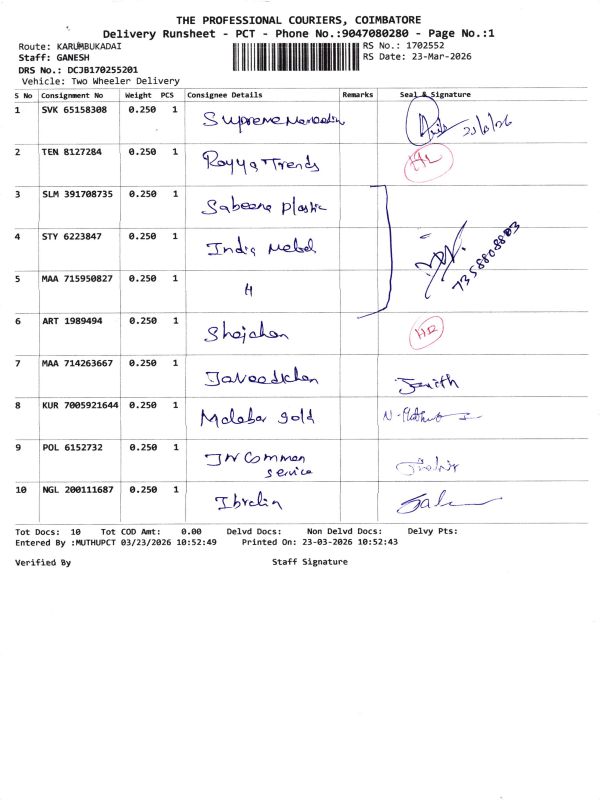 THE PROFESSIONAL COURIERS, COIMBATORE
Delivery Runsheet - PCT - Phone No.:9047080280 - Page No.:1
Route: KARUMBUKADAI RS No.: 1702552
Staff: GANESH RS Date: 23-Mar-2026
DRS No.: DCJB170255201
Vehicle: Two Wheeler Delivery
S No Consignment No Weight PCS Consignee Details Remarks Seal & Signature
1 SVK 65158308 0.250 1 Supreme
2 TEN 8127284 0.250 1 Royya Trends
3 SLM 391708735 0.250 1 Sabeena plastic
4 STY 6223847 0.250 1 India Metal
7358808803
5 MAA 715950827 0.250 1 "
6 ART 1989494 0.250 1 Shajahan
7 MAA 714263667 0.250 1 Javeedkhan
8 KUR 7005921644 0.250 1 Malabar gold
9 POL 6152732 0.250 1 IN Common
service
10 NGL 200111687 0.250 1
Tot Docs: 10 Tot COD Amt: 0.00 Delvd Docs: Non Delvd Docs: Delvy Pts:
Entered By :MUTHUPCT 03/23/2026 10:52:49 Printed On: 23-03-2026 10:52:43
Verified By Staff Signature